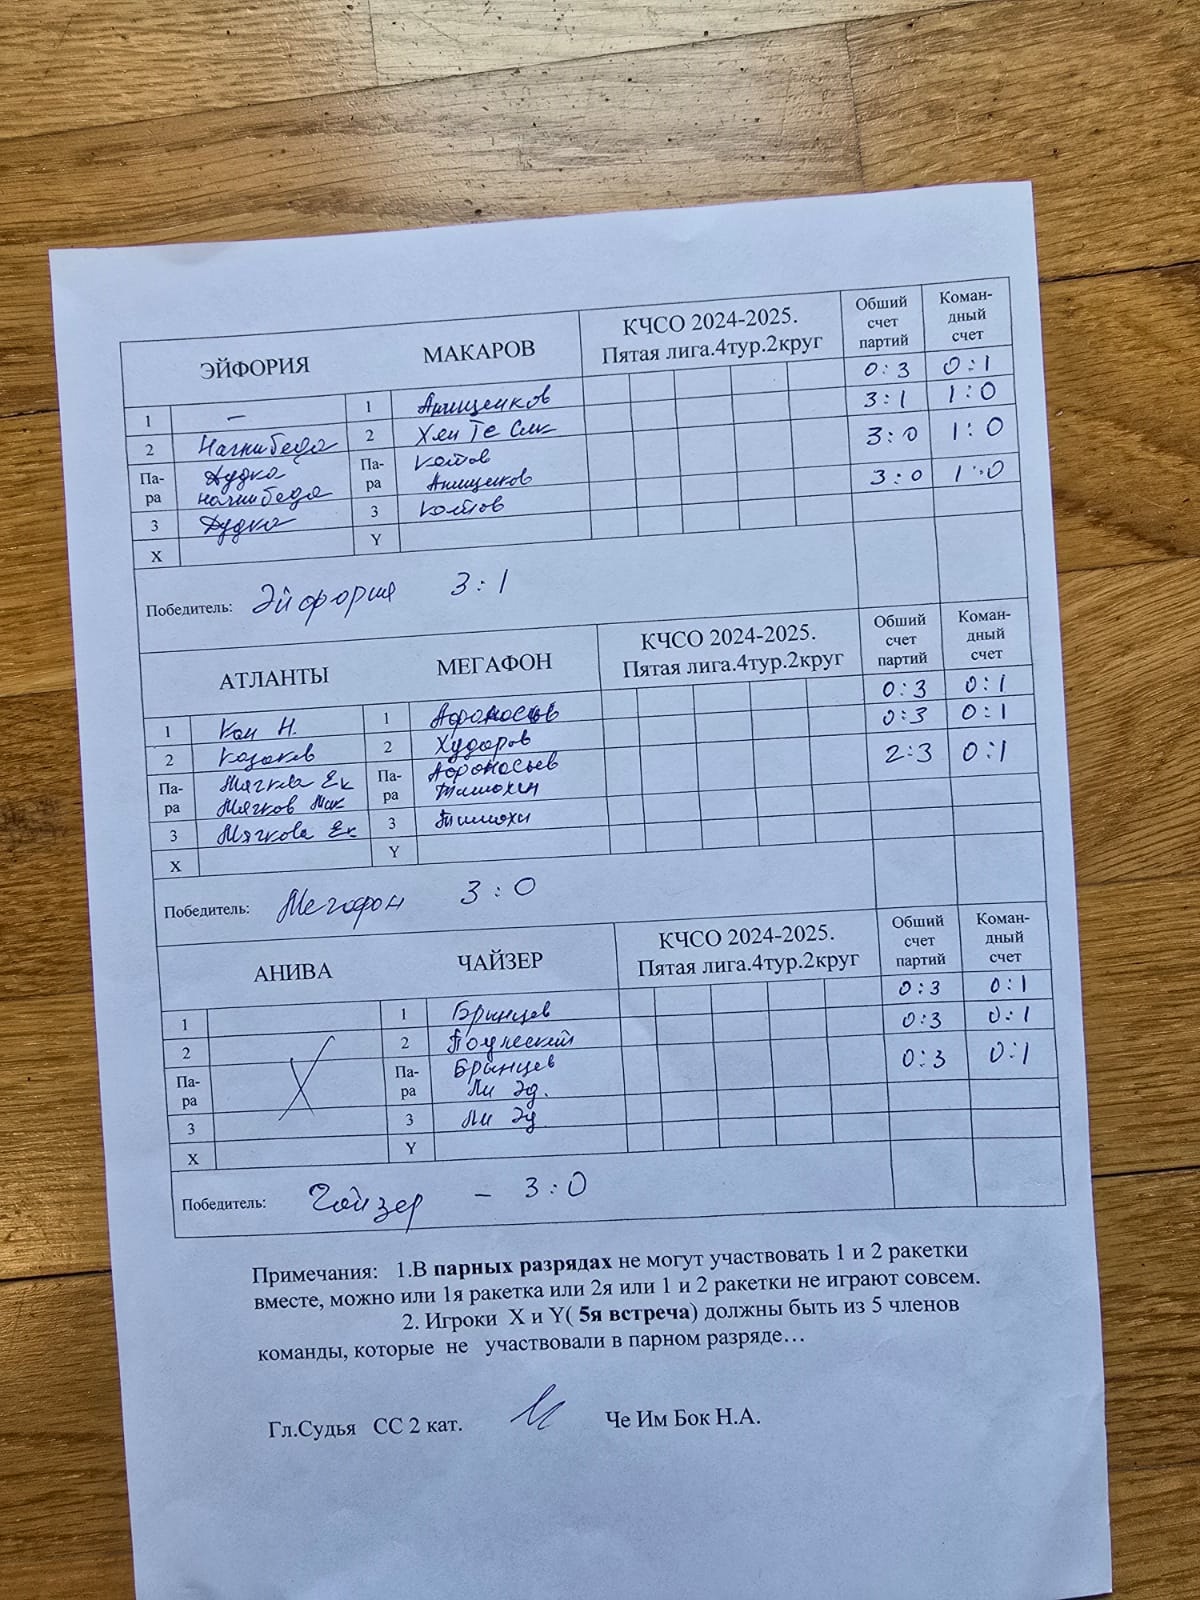 ЭЙФОРИЯ МАКАРОВ КЧСО 2024-2025. Пятая лига.4тур.2круг Обший счет партий Коман-дный счет
1 – 1 Анищенков 0:3 0:1
2 Нагнибеда 2 Хен Те Сик 3:1 1:0
Па-ра Дудко Нагнибеда Па-ра Котов Анищенков 3:0 1:0
3 Дудко 3 Котов 3:0 1:0
X Y
Победитель: Эйфория 3:1
АТЛАНТЫ МЕГАФОН КЧСО 2024-2025. Пятая лига.4тур.2круг Обший счет партий Коман-дный счет
1 Кан Н. 1 Афоносьев 0:3 0:1
2 Казаков 2 Худоров 0:3 0:1
Па-ра Мягкова Ек Мягков Мак Па-ра Афоносьев Тимохин 2:3 0:1
3 Мягкова Ек 3 Тимохин
X Y
Победитель: Мегафон 3:0
АНИВА ЧАЙЗЕР КЧСО 2024-2025. Пятая лига.4тур.2круг Обший счет партий Коман-дный счет
1 1 Брынцев 0:3 0:1
2 2 0:3 0:1
Па-ра Па-ра Брынцев Ли Эд. 0:3 0:1
3 3 Ли Эд
X Y
Победитель: Чайзер – 3:0
Примечания: 1.В парных разрядах не могут участвовать 1 и 2 ракетки
вместе, можно или 1я ракетка или 2я или 1 и 2 ракетки не играют совсем.
2. Игроки X и Y( 5я встреча) должны быть из 5 членов
команды, которые не участвовали в парном разряде…
Гл.Судья СС 2 кат. Че Им Бок Н.А.